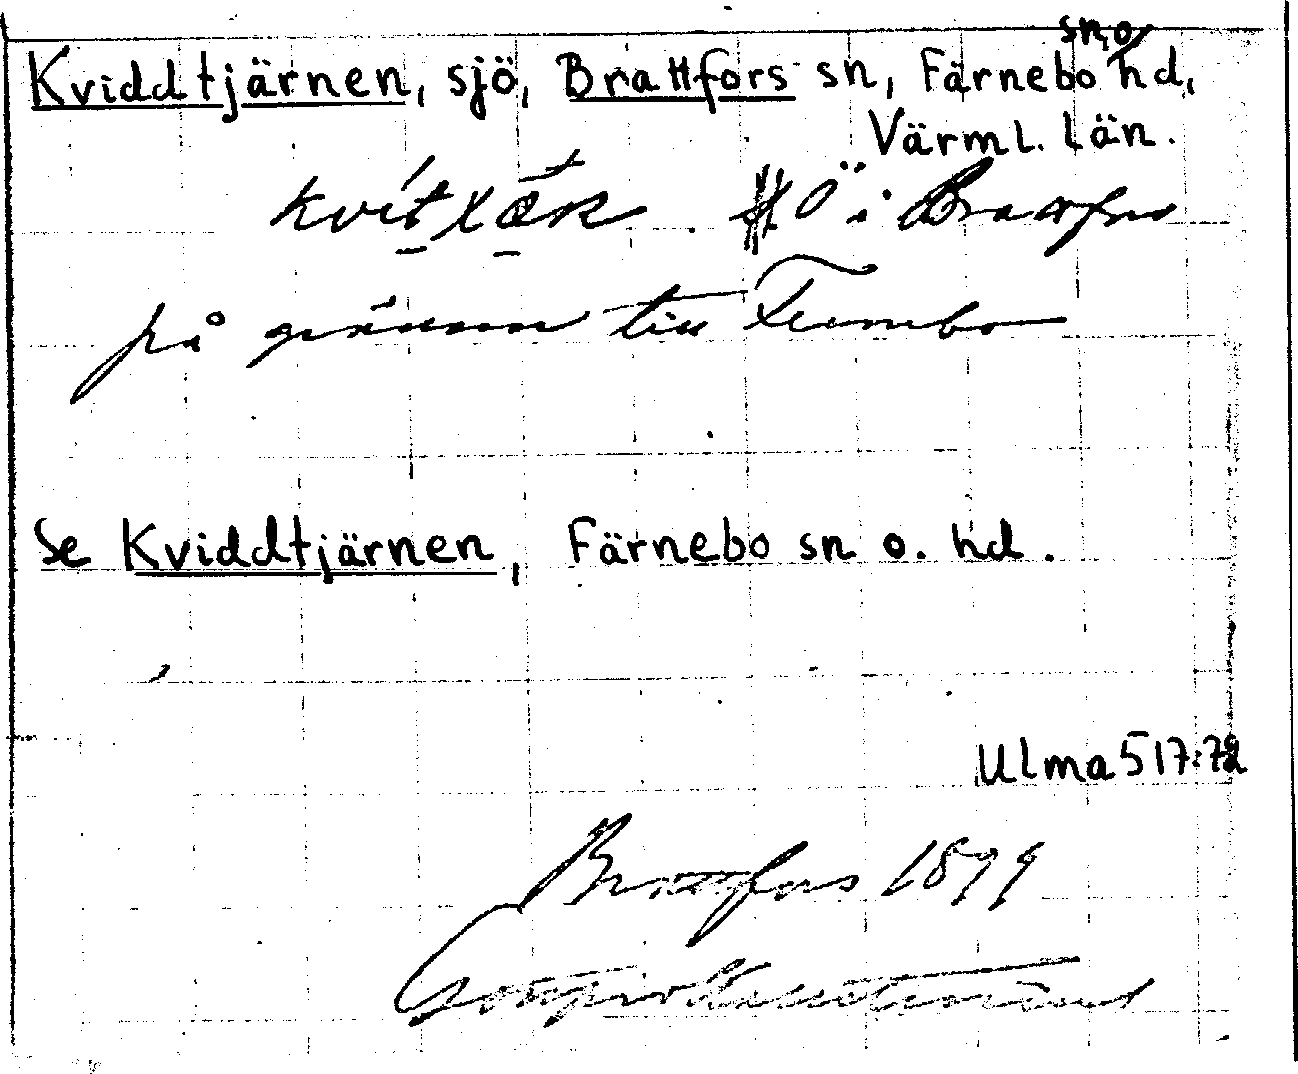 Kviddtjärnen, sjö, Brattfors sn, Färnebo sn o hd,
Värml. län.
i Brattfors
på gränsen till Fernebo
Se Kviddtjärnen, Färnebo sn o. hd.
Ulma 517:72
Brattfors 1899